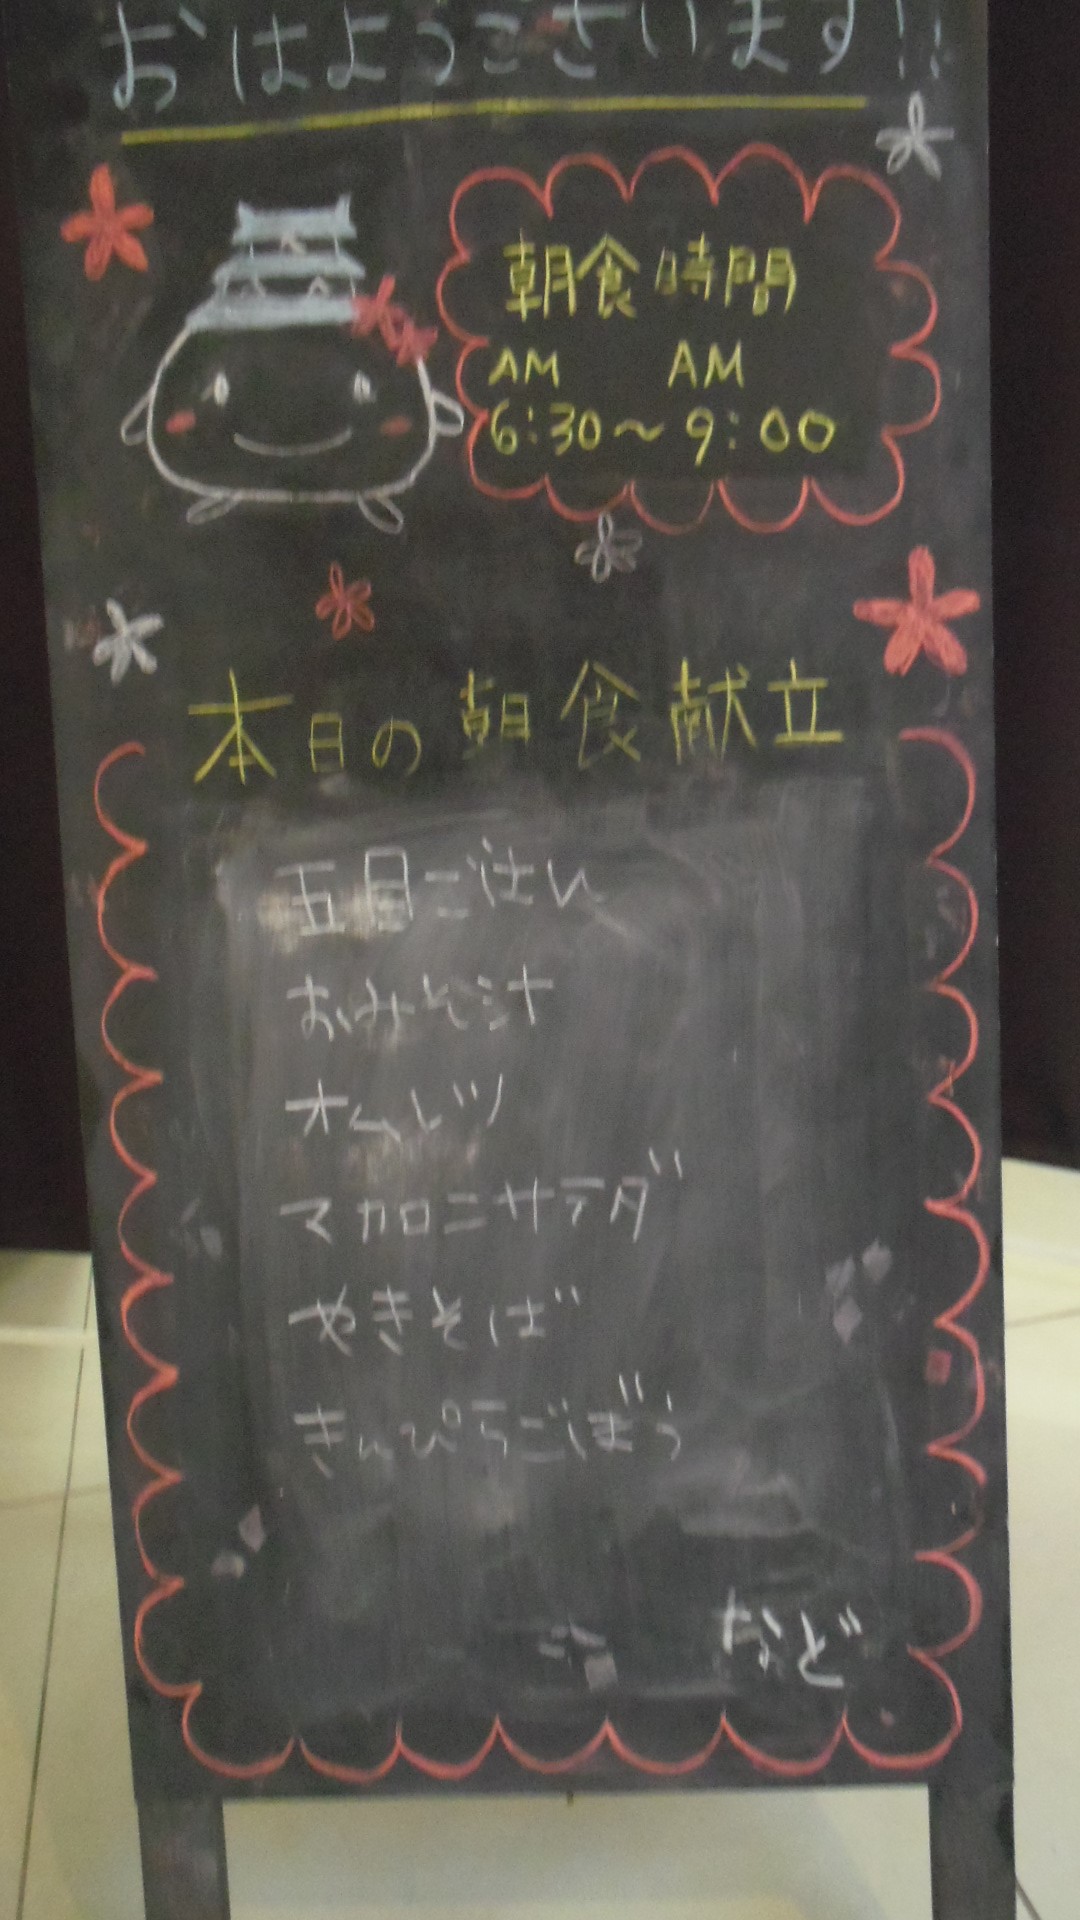 おはようございます!!
朝食時間
AM AM
6:30～9:00
本日の朝食献立
五目ごはん
おみそ汁
オムレツ
マカロニサラダ
やきそば
きんぴらごぼう
など